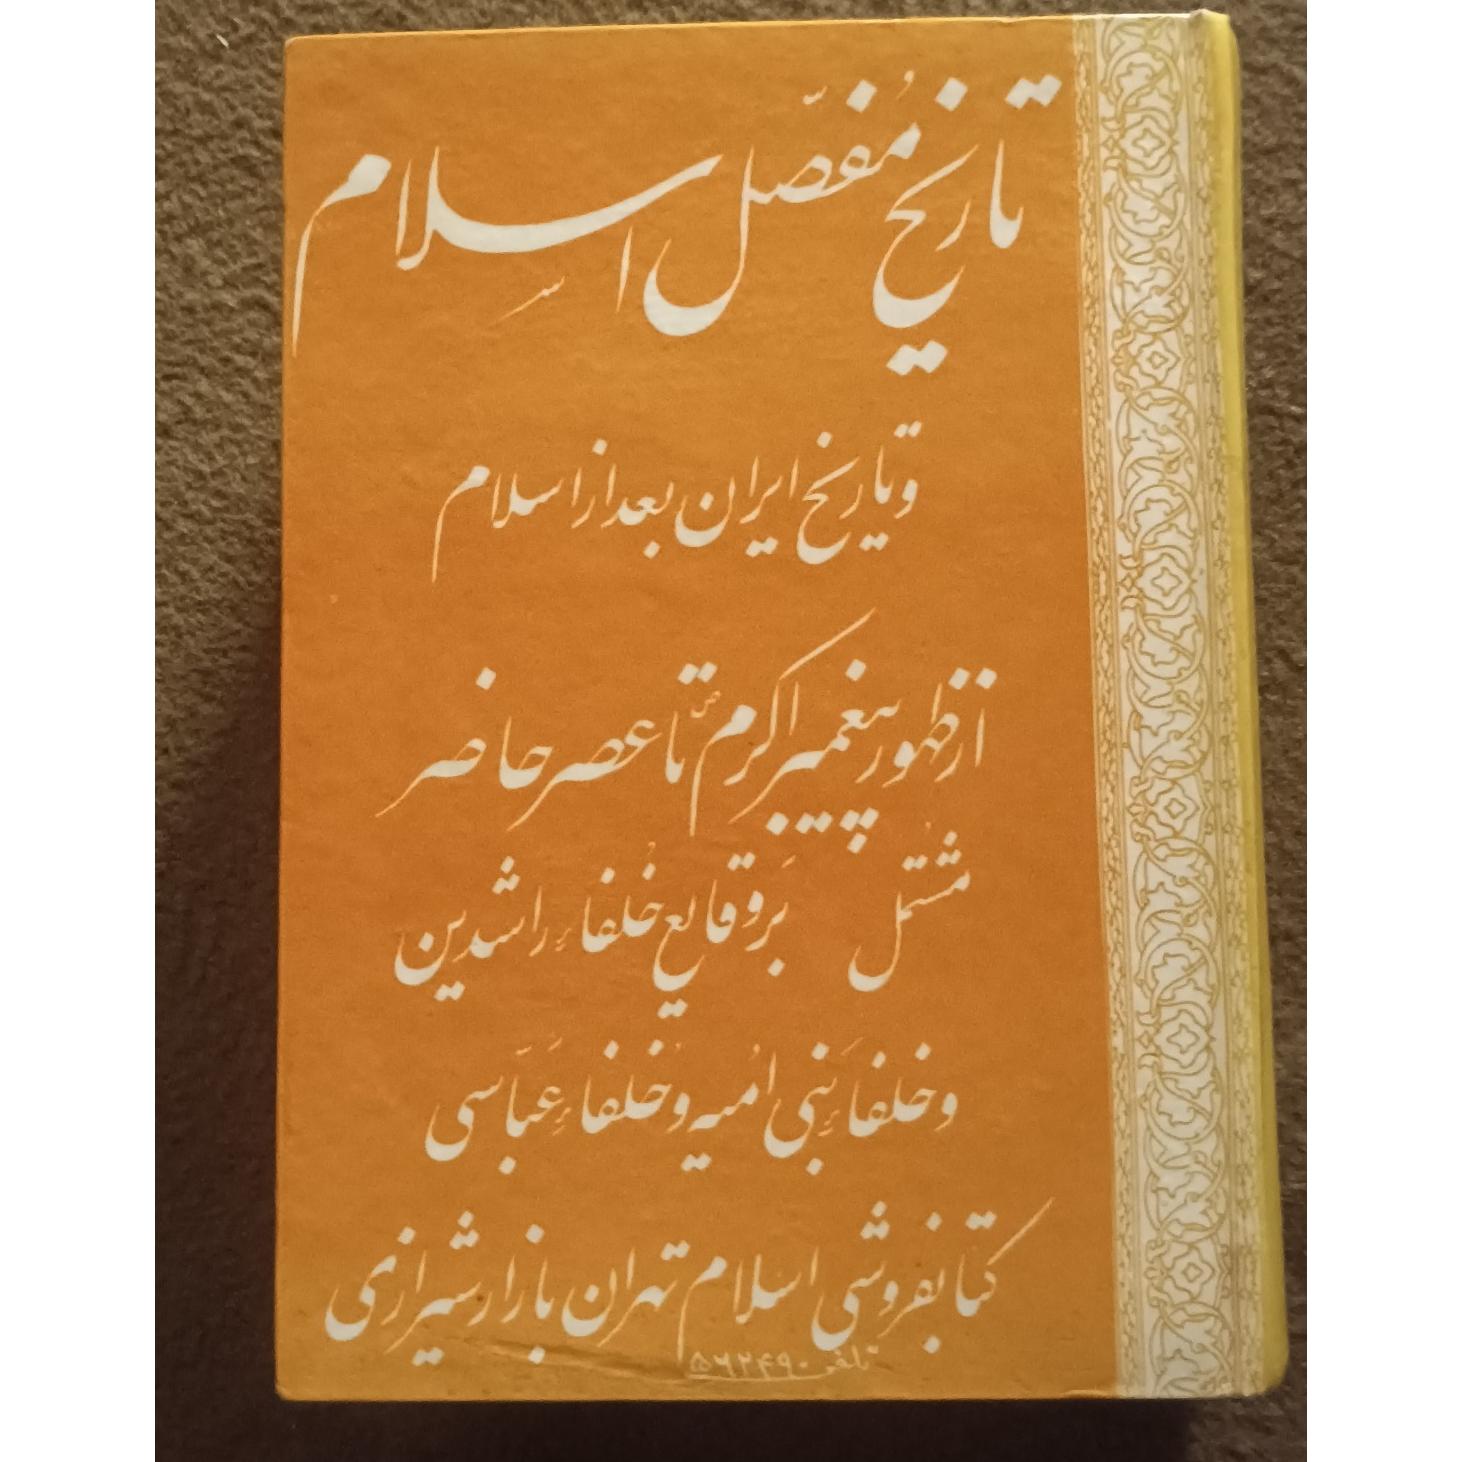 تاریخ مُفصّل اسلام
و تاریخ ایران بعد از اسلام
از ظهور پیغمبر اکرم ص تا عصر حاضر
مُشتمل بَر وقایع خُلفاءِ راشدین
و خلفاءِ بَنی اُمیه و خُلفاءِ عَبّاسی
کتابفروشی اسلام تهران بازار شیرازی
تلفن ۵۶۲۴۹۰